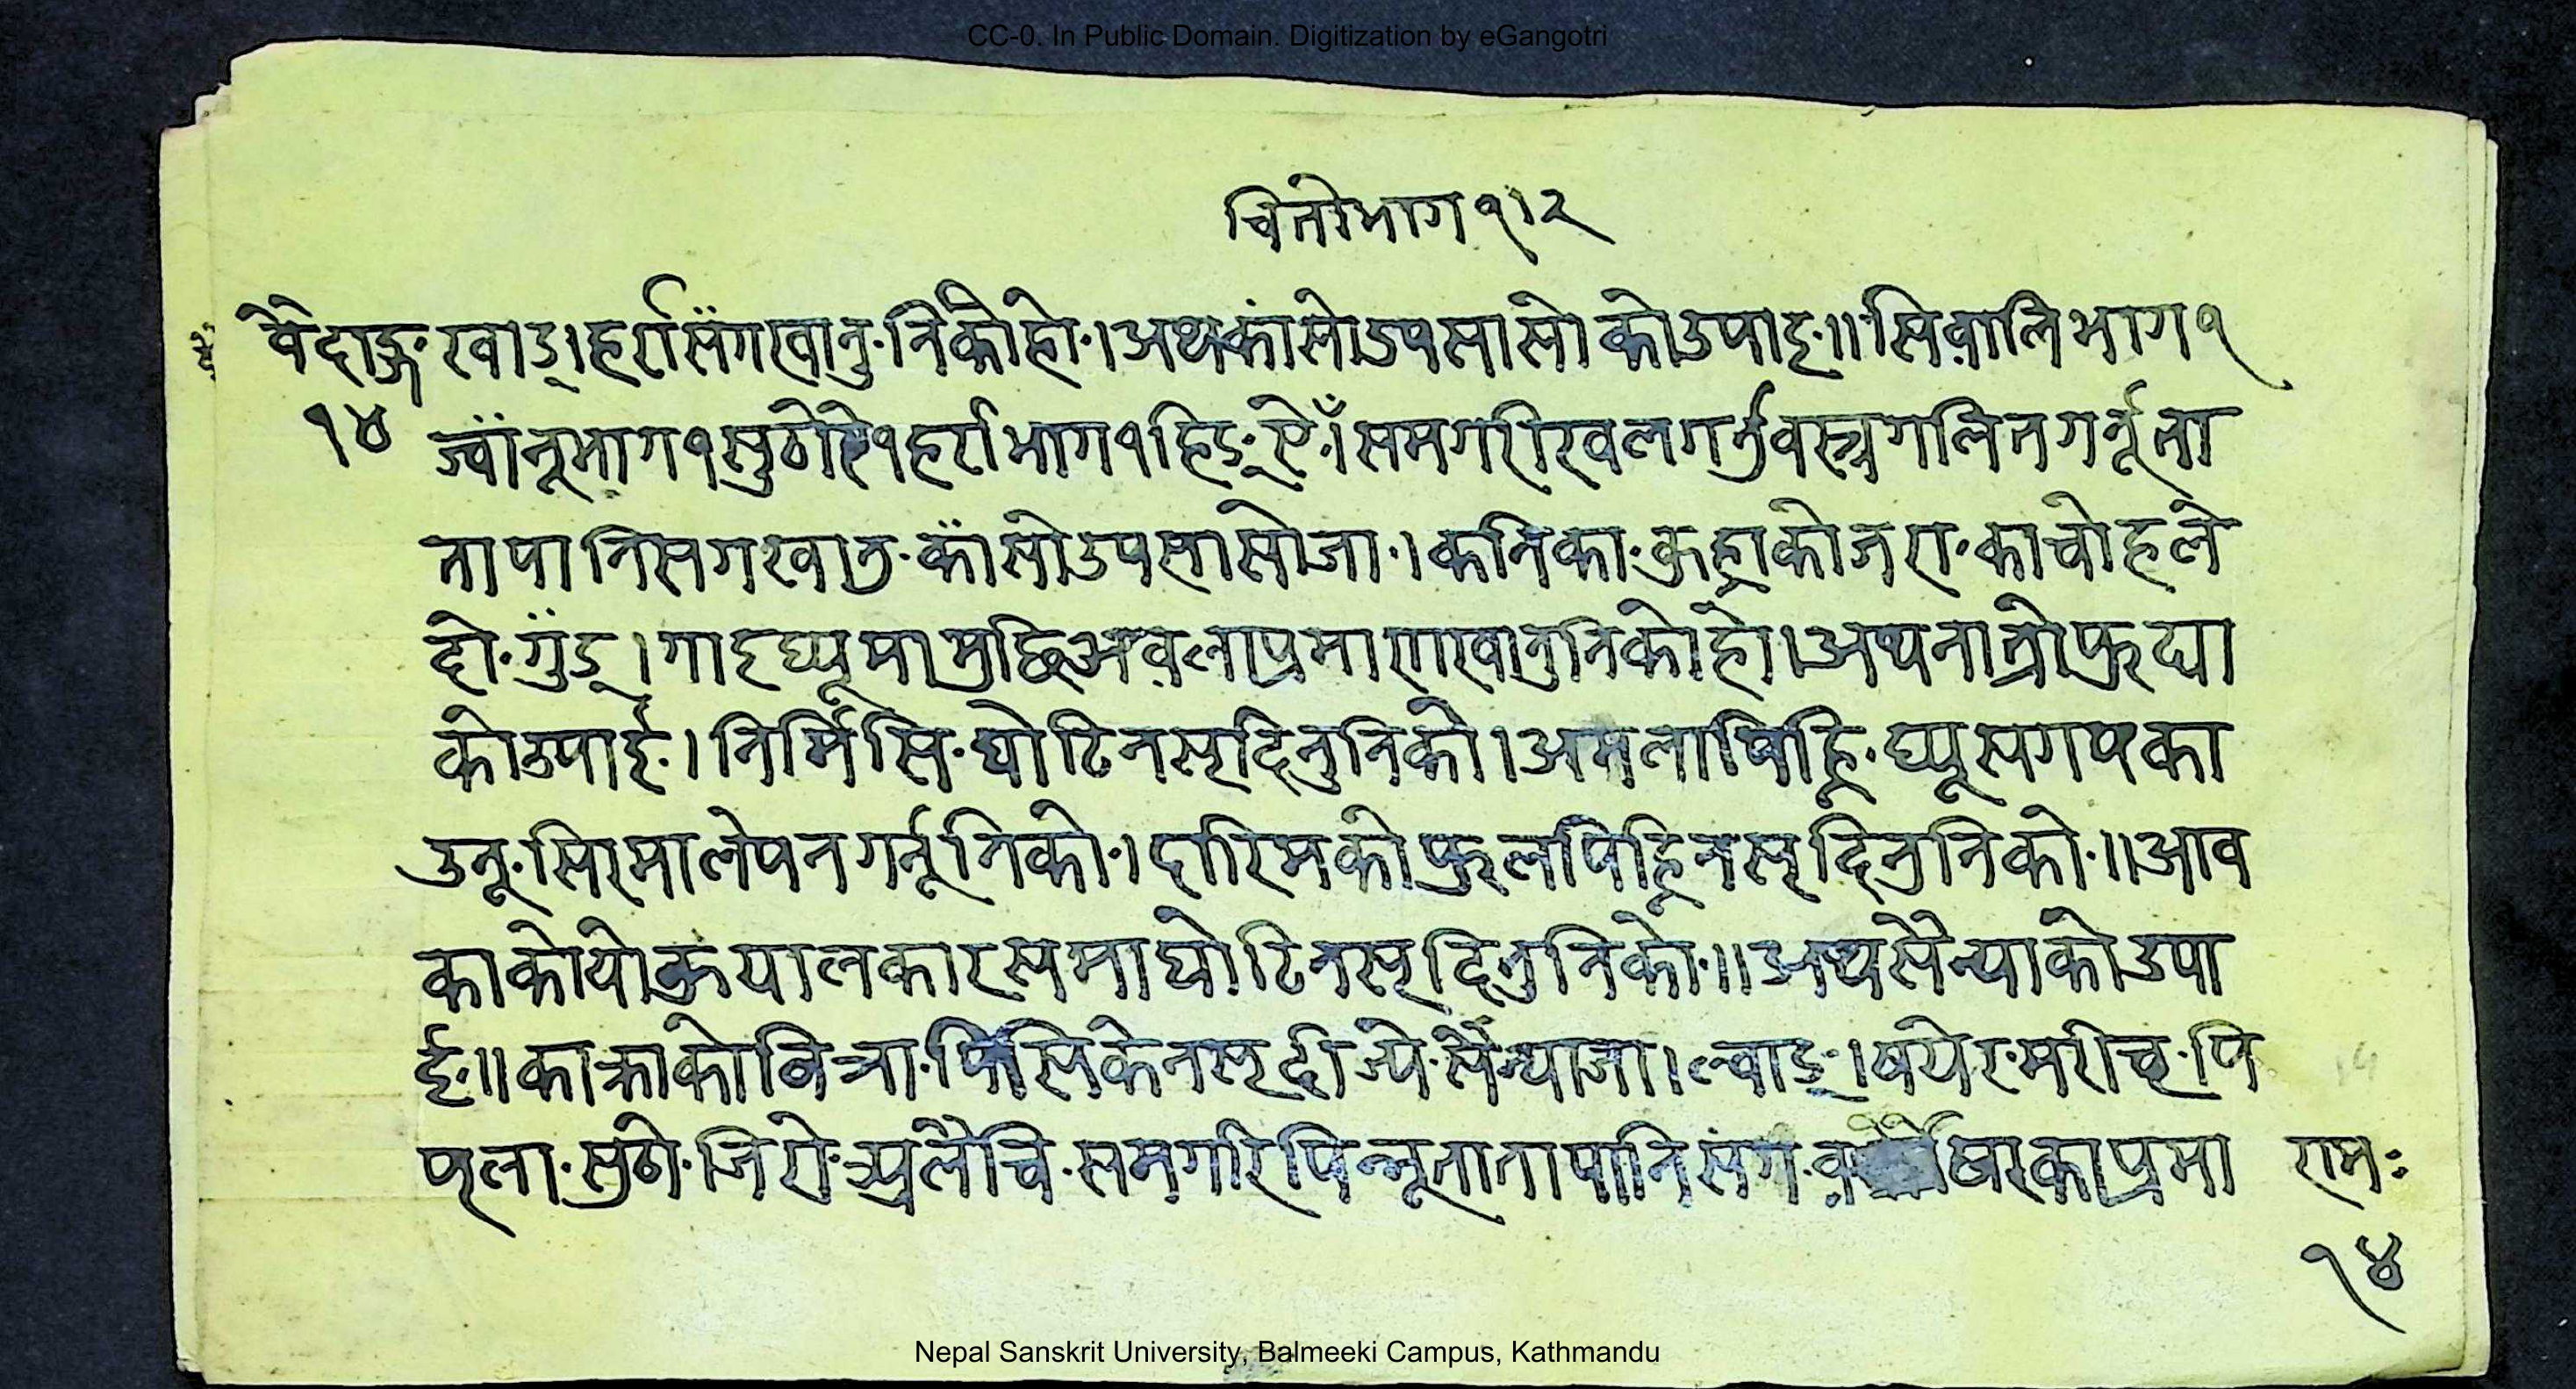 CC-0. In Public Domain. Digitization by eGangotri
चितोभाग १।२
वैदाङ्ग खाड्। हर्रासँगखानु·निकोहो·। अथकांसोउपसासो कोउपाइ॥ सिवालिभाग १
१४
ज्वाँनूभाग १ सुठो १ हर्राभाग १ हिङ् समगरीखलगर्नुवस्त्रगलितगर्नूता
तापानिसगखानु·काँसोउपसासोजा·। कनिका·कुह्राकोजरा·काचोहले
दो·गुँड्। गाइघ्यूमामुछिअवलाप्रमाणखानुनिकोहो। अथनात्रोफुट्या
कोउपाई·। निर्मिसि·घोटिनसृदिनुनिको। अमलापिहि·घ्यूसगपका
उनू·सिरमालेपनगर्नूनिको·। दारिमकोफुलपिहिनसृदिनुनिको·॥ आव
काकोयोकुयालकारसमाघोटिनसृदिनुनिको·॥ अथसैन्याकोउपा
ई·॥ काक्राकोवित्रा·पिसिकेनसृदीज्ये·सैन्याजा। ल्वाङ्·। षयेर·मरीच·पि
पृला·सुठो·जिरो· लैचि·समगरिपिन्नूतातापानिसंग· प्रमा
रामः
१४
Nepal Sanskrit University, Balmeeki Campus, Kathmandu